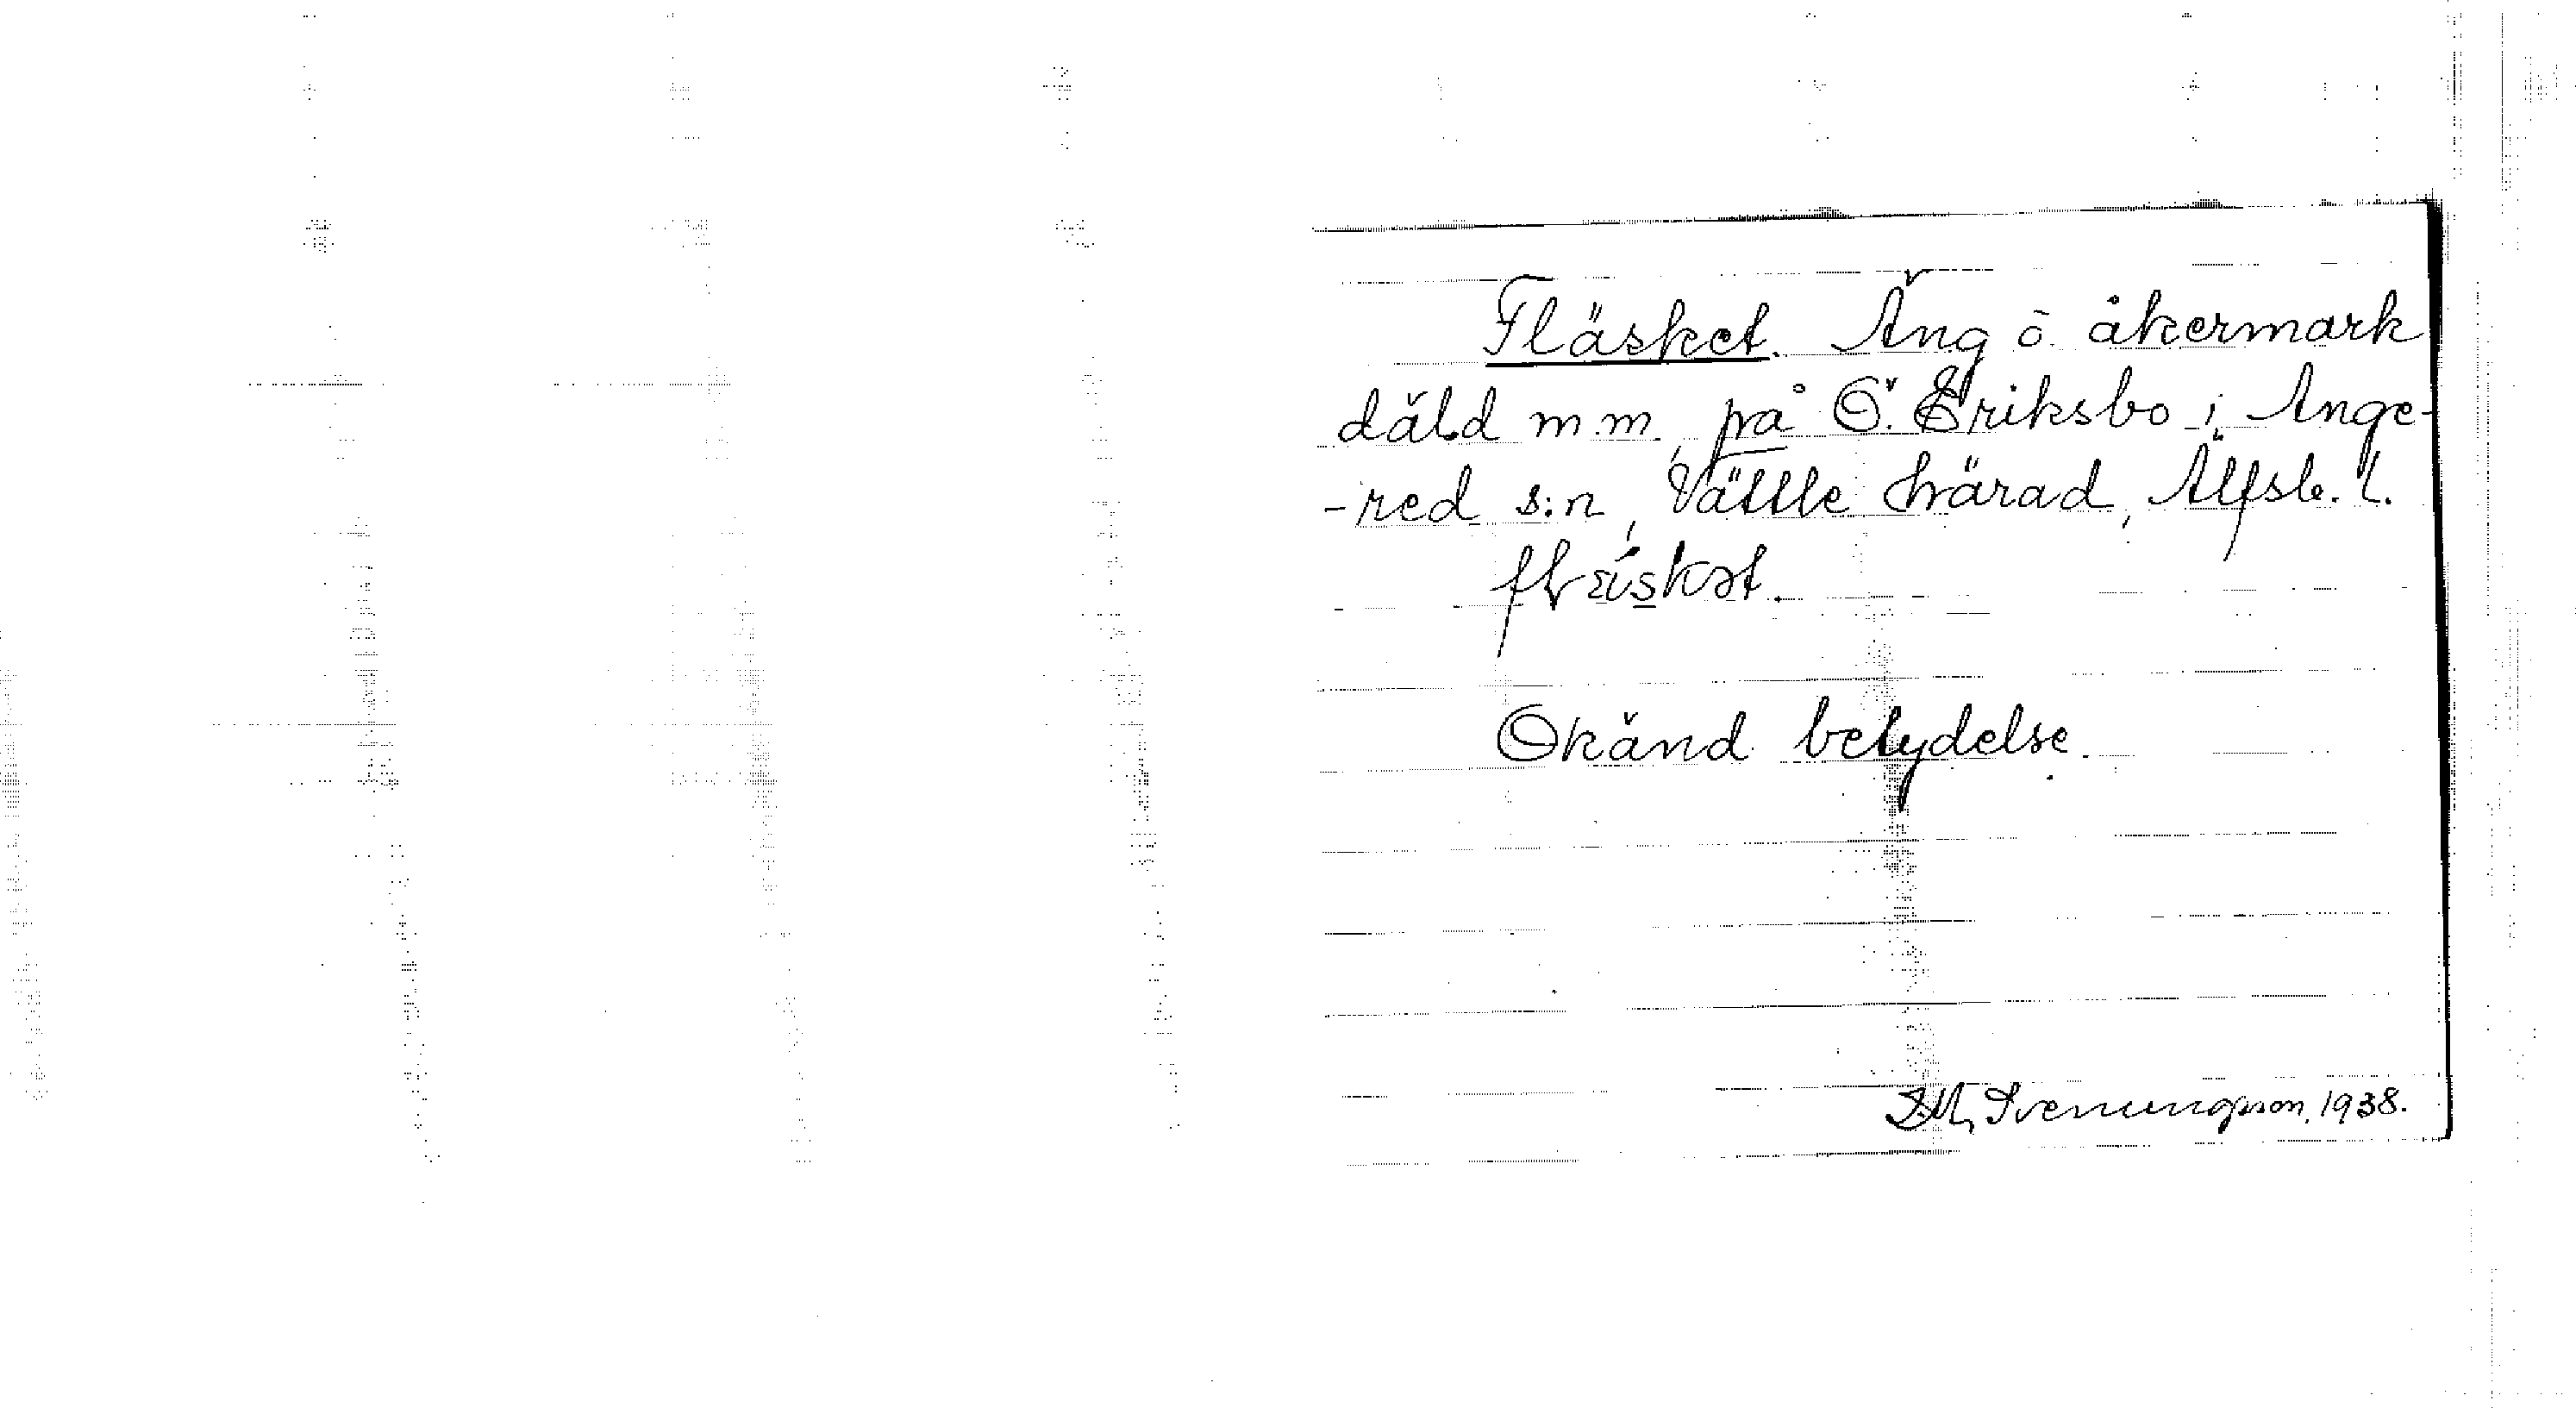 Fläsket. Äng ö åkermark
däld m.m, på Ö. Eriksbo i Ange-
-red s:n, Vättle härad, Älfsb. l.
Okänd betydelse.
Svenungsson, 1938.